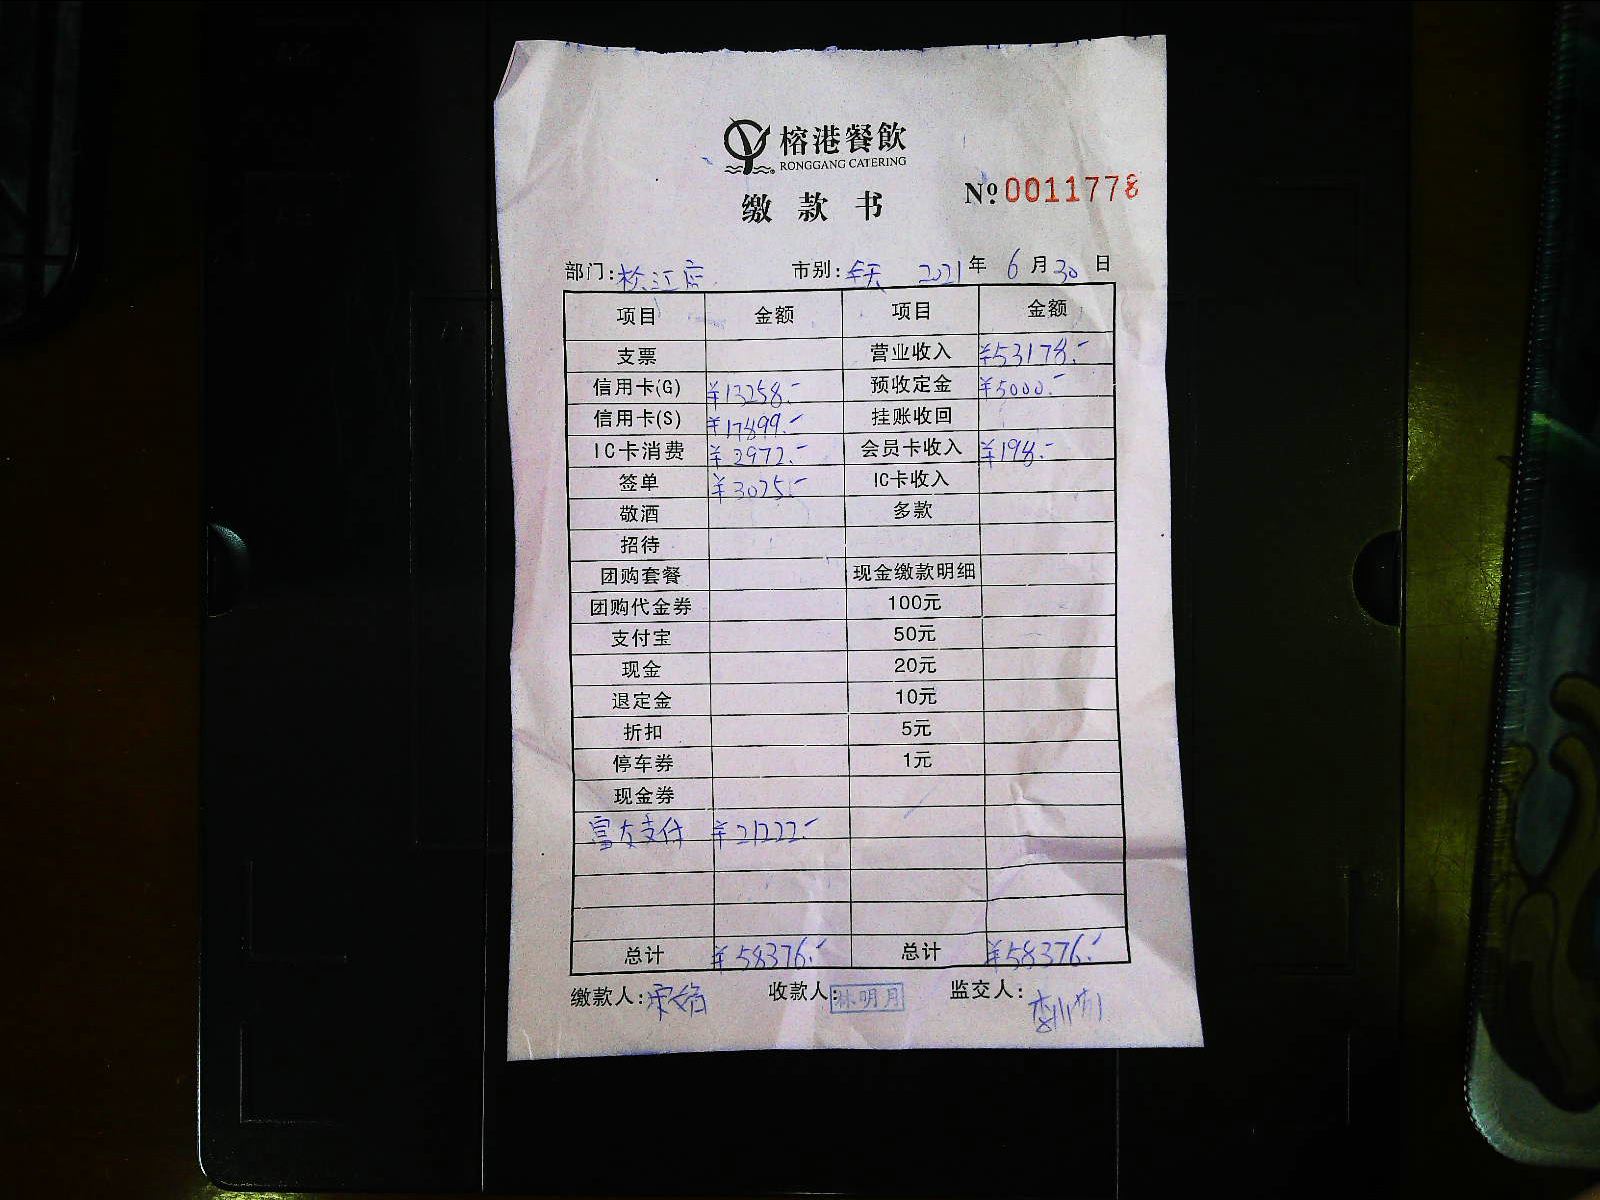 榕港餐飲
RONGGANG CATERING
缴款书
№ 0011778
部门: 松江 市别: 全天 2021年 6月30日
项目 金额 项目 金额
支票 营业收入 ¥53178.-
信用卡(G) ¥13258.- 预收定金 ¥5000.-
信用卡(S) ¥17899.- 挂账收回
IC卡消费 ¥2972.- 会员卡收入 ¥198.-
签单 ¥3025.- IC卡收入
敬酒 多款
招待
团购套餐 现金缴款明细
团购代金券 100元
支付宝 50元
现金 20元
退定金 10元
折扣 5元
停车券 1元
现金券
富友支付 ¥21222.-
总计 ¥58376.- 总计 ¥58376.-
缴款人: 收款人: 林明月 监交人: